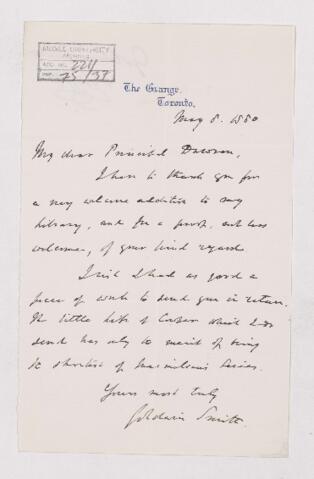 McGILL UNIVERSITY
ARCHIVES
ACC. NO. 2211
REF. 75/39
The Grange,
Toronto.
May 8. 1880
My dear Principal Dawson,
I have to thank you for
a very welcome addition to my
library, and for a proof, not less
welcome, of your kind regard.
I wish I had as good a
piece of work to send you in return.
The little life of Cowper which I do
send has only the merit of being
the shortest of Macmillan's Series.
Yours most truly
Goldwin Smith